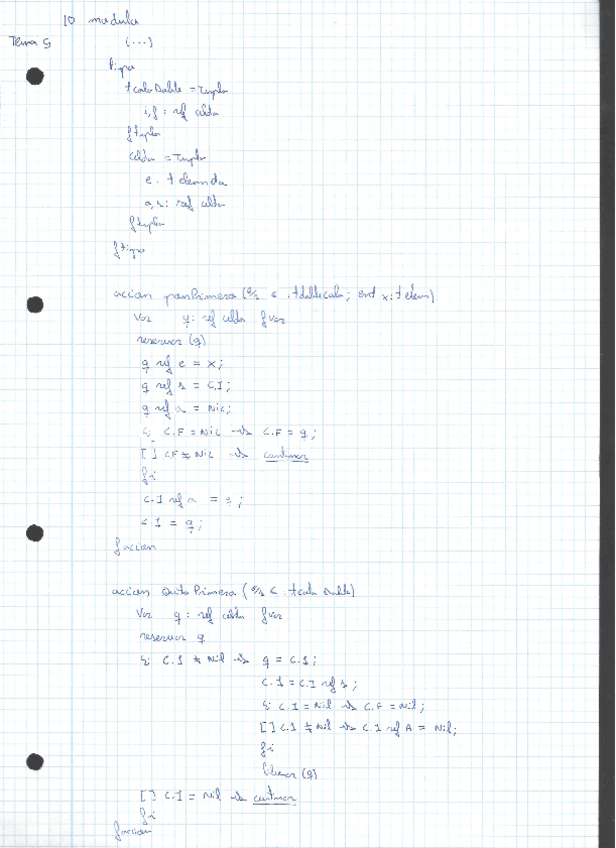 10 modulo
Tema 5 (...)
tipo
tcolaDoble = Tupla
i, f : ref celda
ftupla
celda = Tupla
e : telemento
a, s : ref celda
ftupla
ftipo
accion ponPrimero (e/s c : tdoblecola; ent x : telem)
Var q : ref celda fvar
reservar (q)
q ref e = x;
q ref s = C.I;
q ref a = Nil;
si C.F = Nil -> C.F = q;
[] C.F ≠ Nil -> continuar
fsi
C.I ref a = q;
C.I = q;
faccion
accion QuitaPrimero (e/s c : tcolaDoble)
Var q : ref celda fvar
reservar q
si C.I ≠ Nil -> q = C.I;
C.I = C.I ref s;
si C.I = Nil -> C.F = Nil;
[] C.I ≠ Nil -> C.I ref A = Nil;
fsi
liberar (q)
[] C.I = Nil -> continuar
fsi
faccion